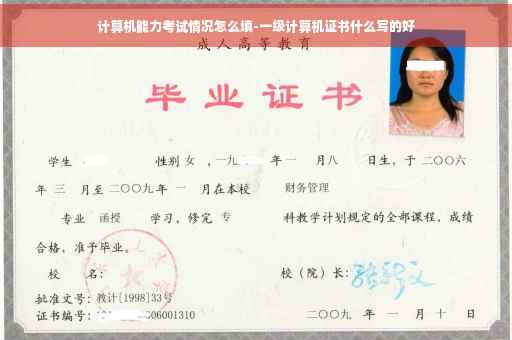 计算机能力考试情况怎么填-一级计算机证书什么写的好
成人高等教育
毕业证书
学生 性别 女 ，一九 年 一 月八 日生，于 二〇〇六
年 三 月至 二〇〇九 年 一 月在本校 财务管理
专业 函授 学习，修完 专 科教学计划规定的全部课程，成绩
合格，准予毕业。
校 名： 校（院）长：
批准文号：教计[1998]33号
证书编号： 006001310 二〇〇九 年 一 月 十 日